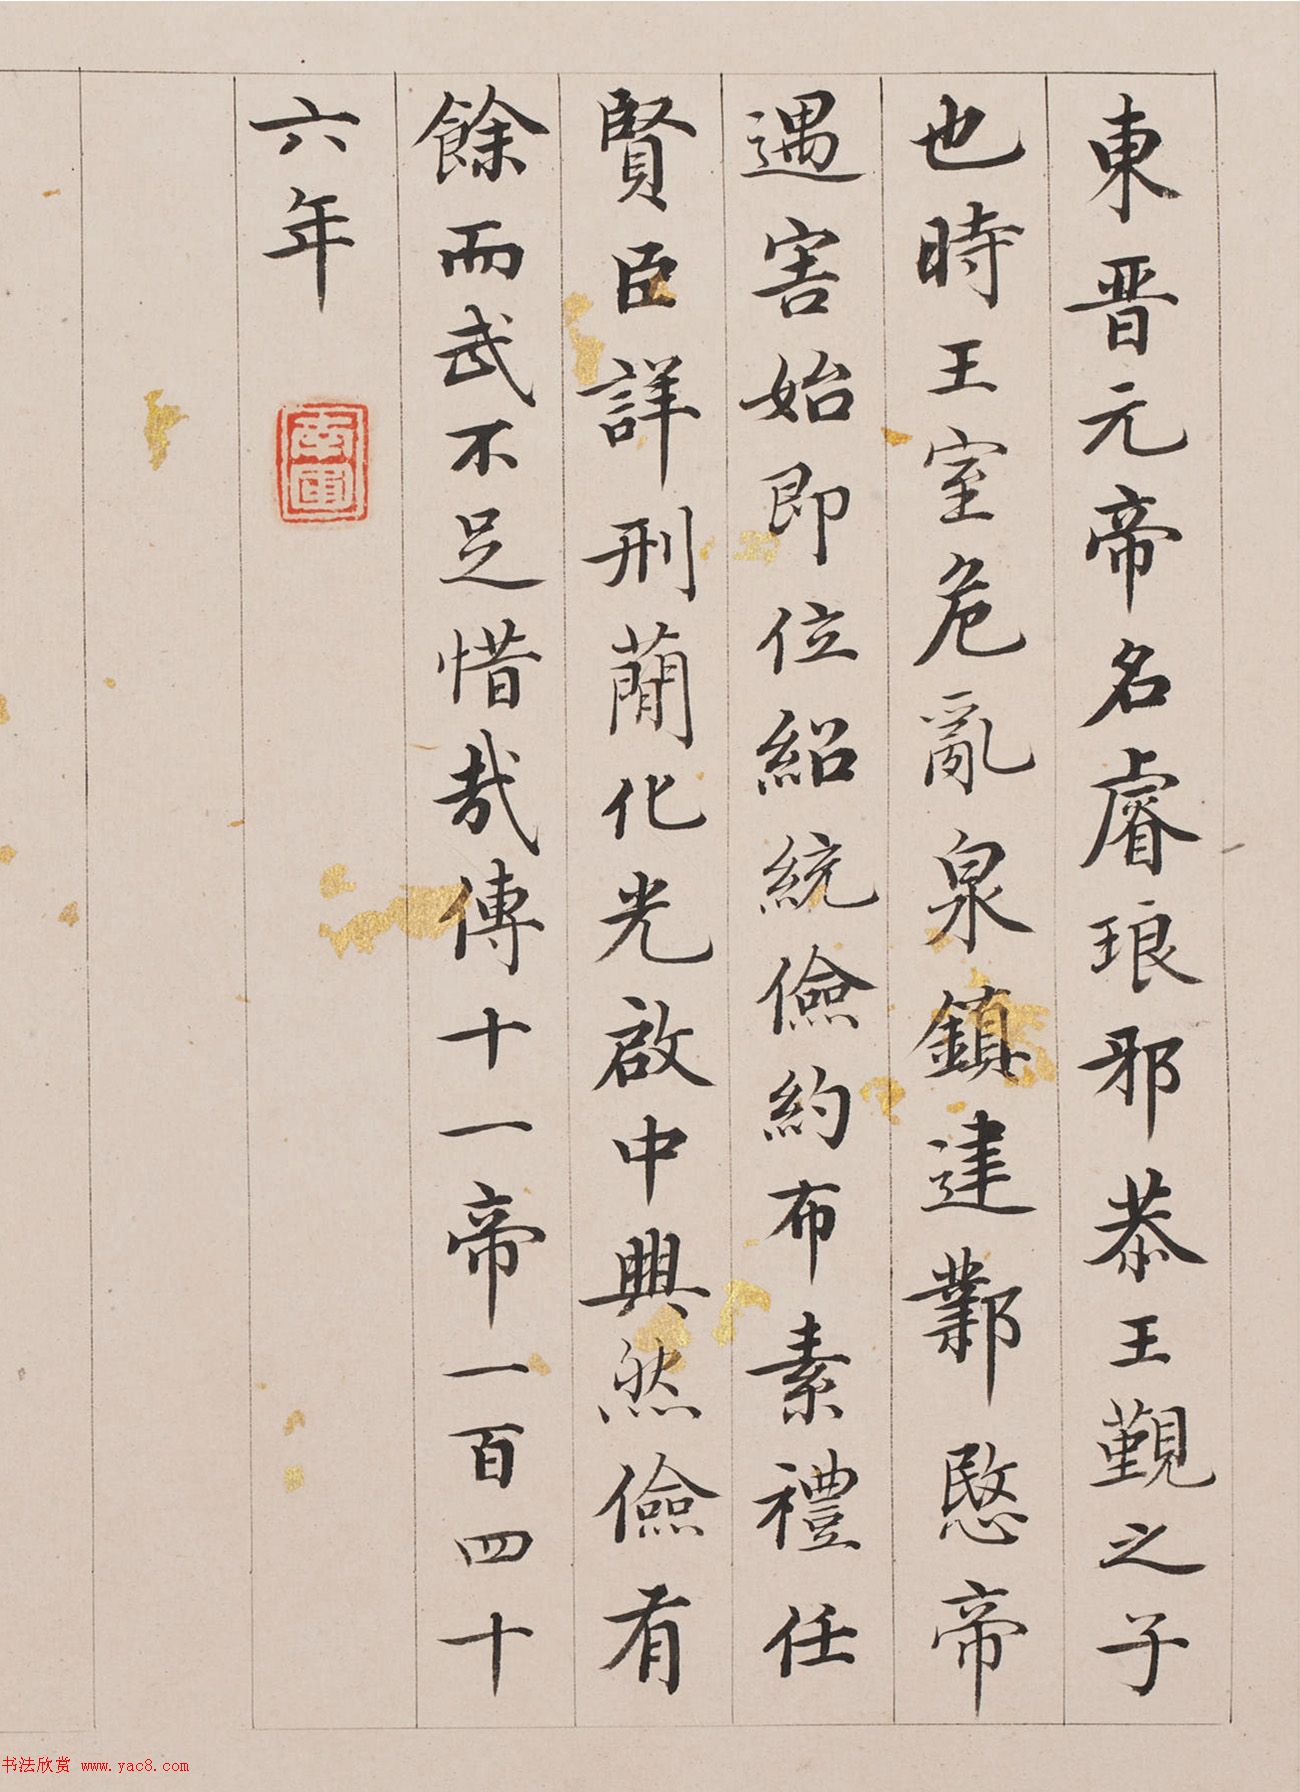 東晋元帝名睿琅邪恭王覲之子
也時王室危亂泉鎮建鄴愍帝
遇害始即位紹統儉約布素禮任
賢臣詳刑蕑化光啟中興然儉有
餘而武不足惜哉傳十一帝一百四十
六年
书法欣赏 www.yac8.com